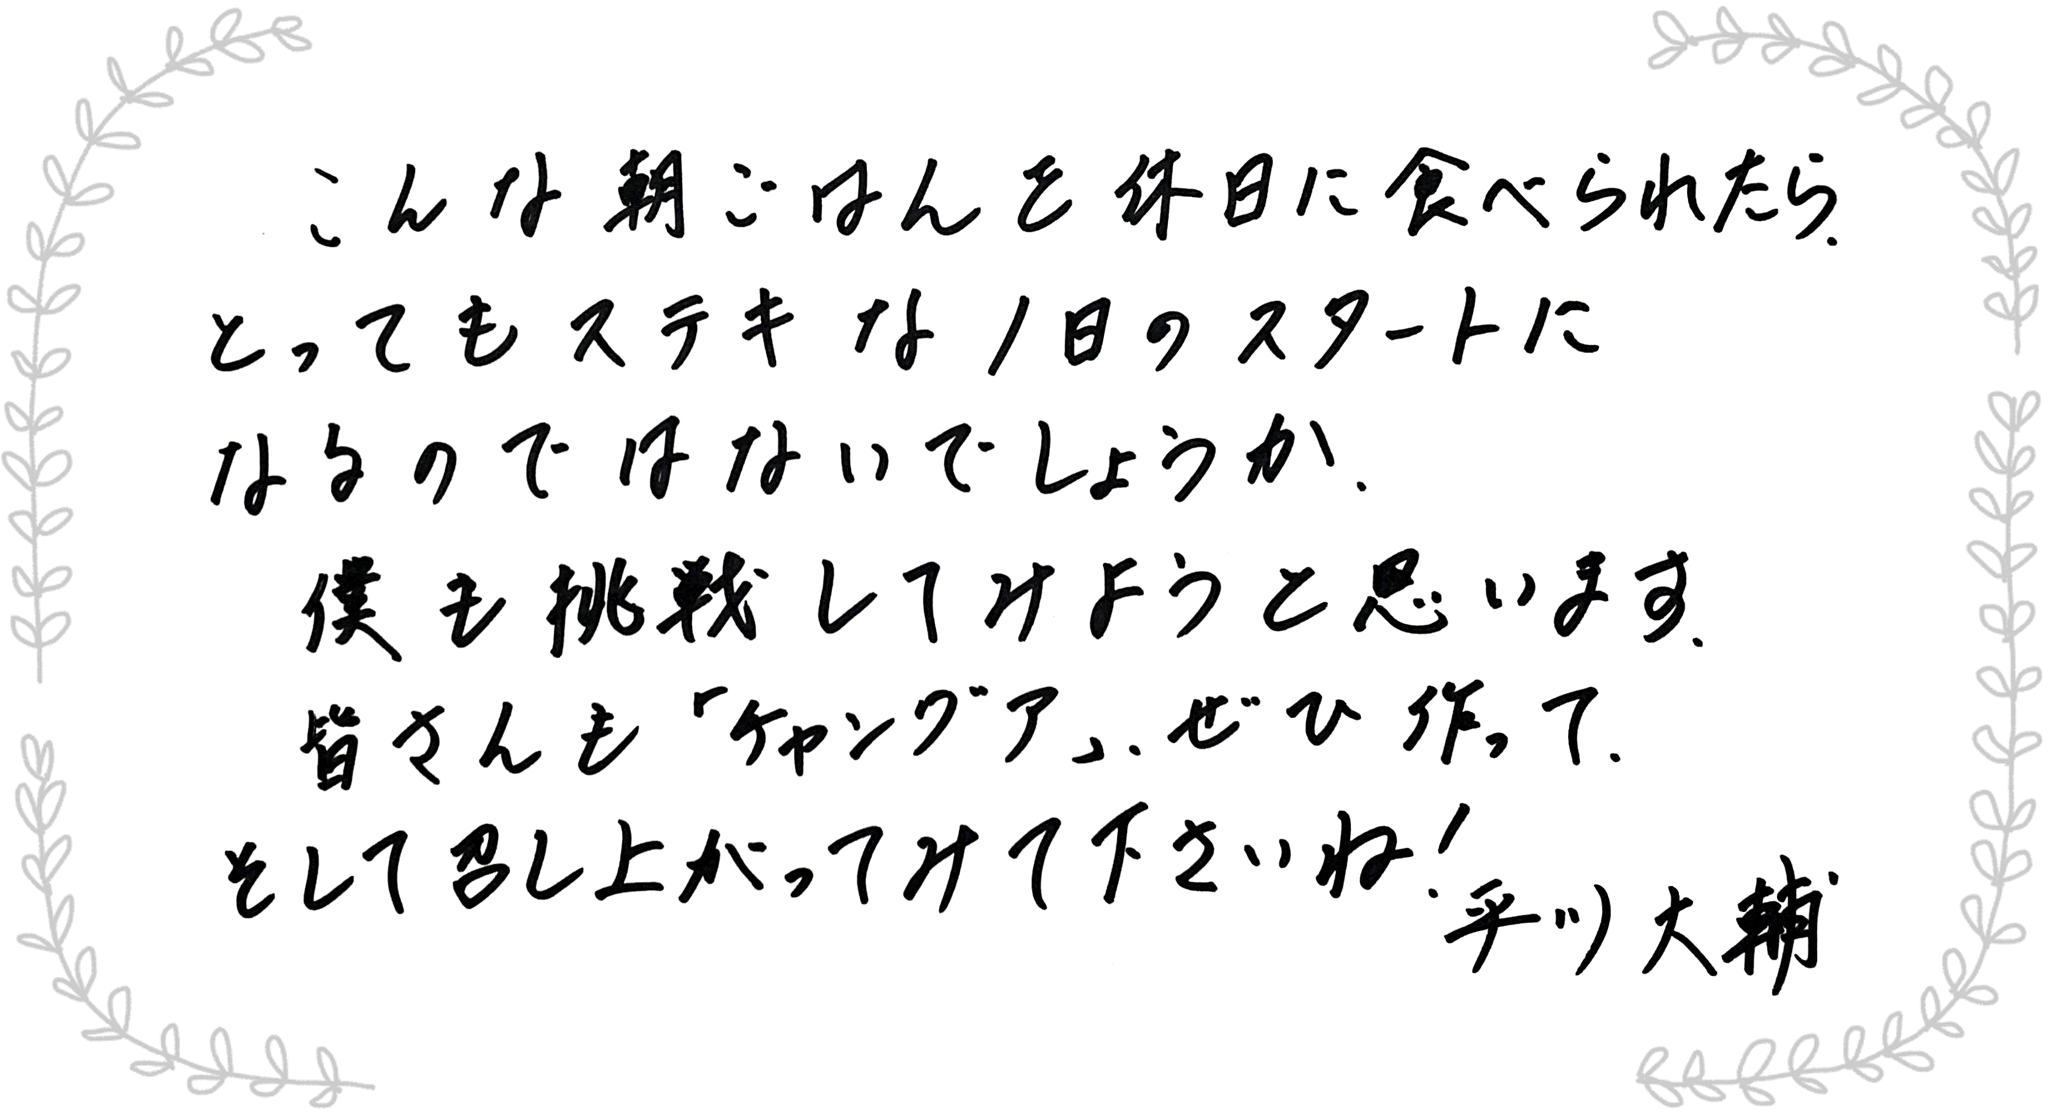 こんな朝ごはんを休日に食べられたら、
とってもステキな1日のスタートに
なるのではないでしょうか。
僕も挑戦してみようと思います。
皆さんも「チャングア」、ぜひ作って、
そして召し上がってみて下さいね！
平川大輔